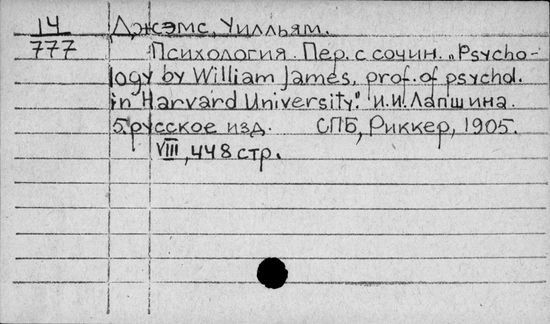 14
777
Джэмс, Уилльям.
Психология. Пер. с сочин. „Psycho-
logy by William James, prof. of psychol.
in Harvard University". И.И. Лапшина.
5 русское изд. СПБ, Риккер, 1905.
VIII, 448 стр.